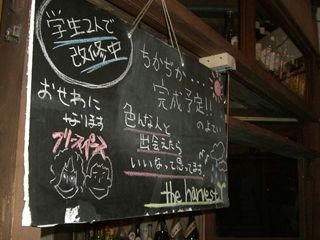 学生2人で
改修中
おせわに
なります
フリースペース
ちかぢか...
完成予定!!
のよてい
色んな人と
出会えたら
いいなって思ってます
the harvest